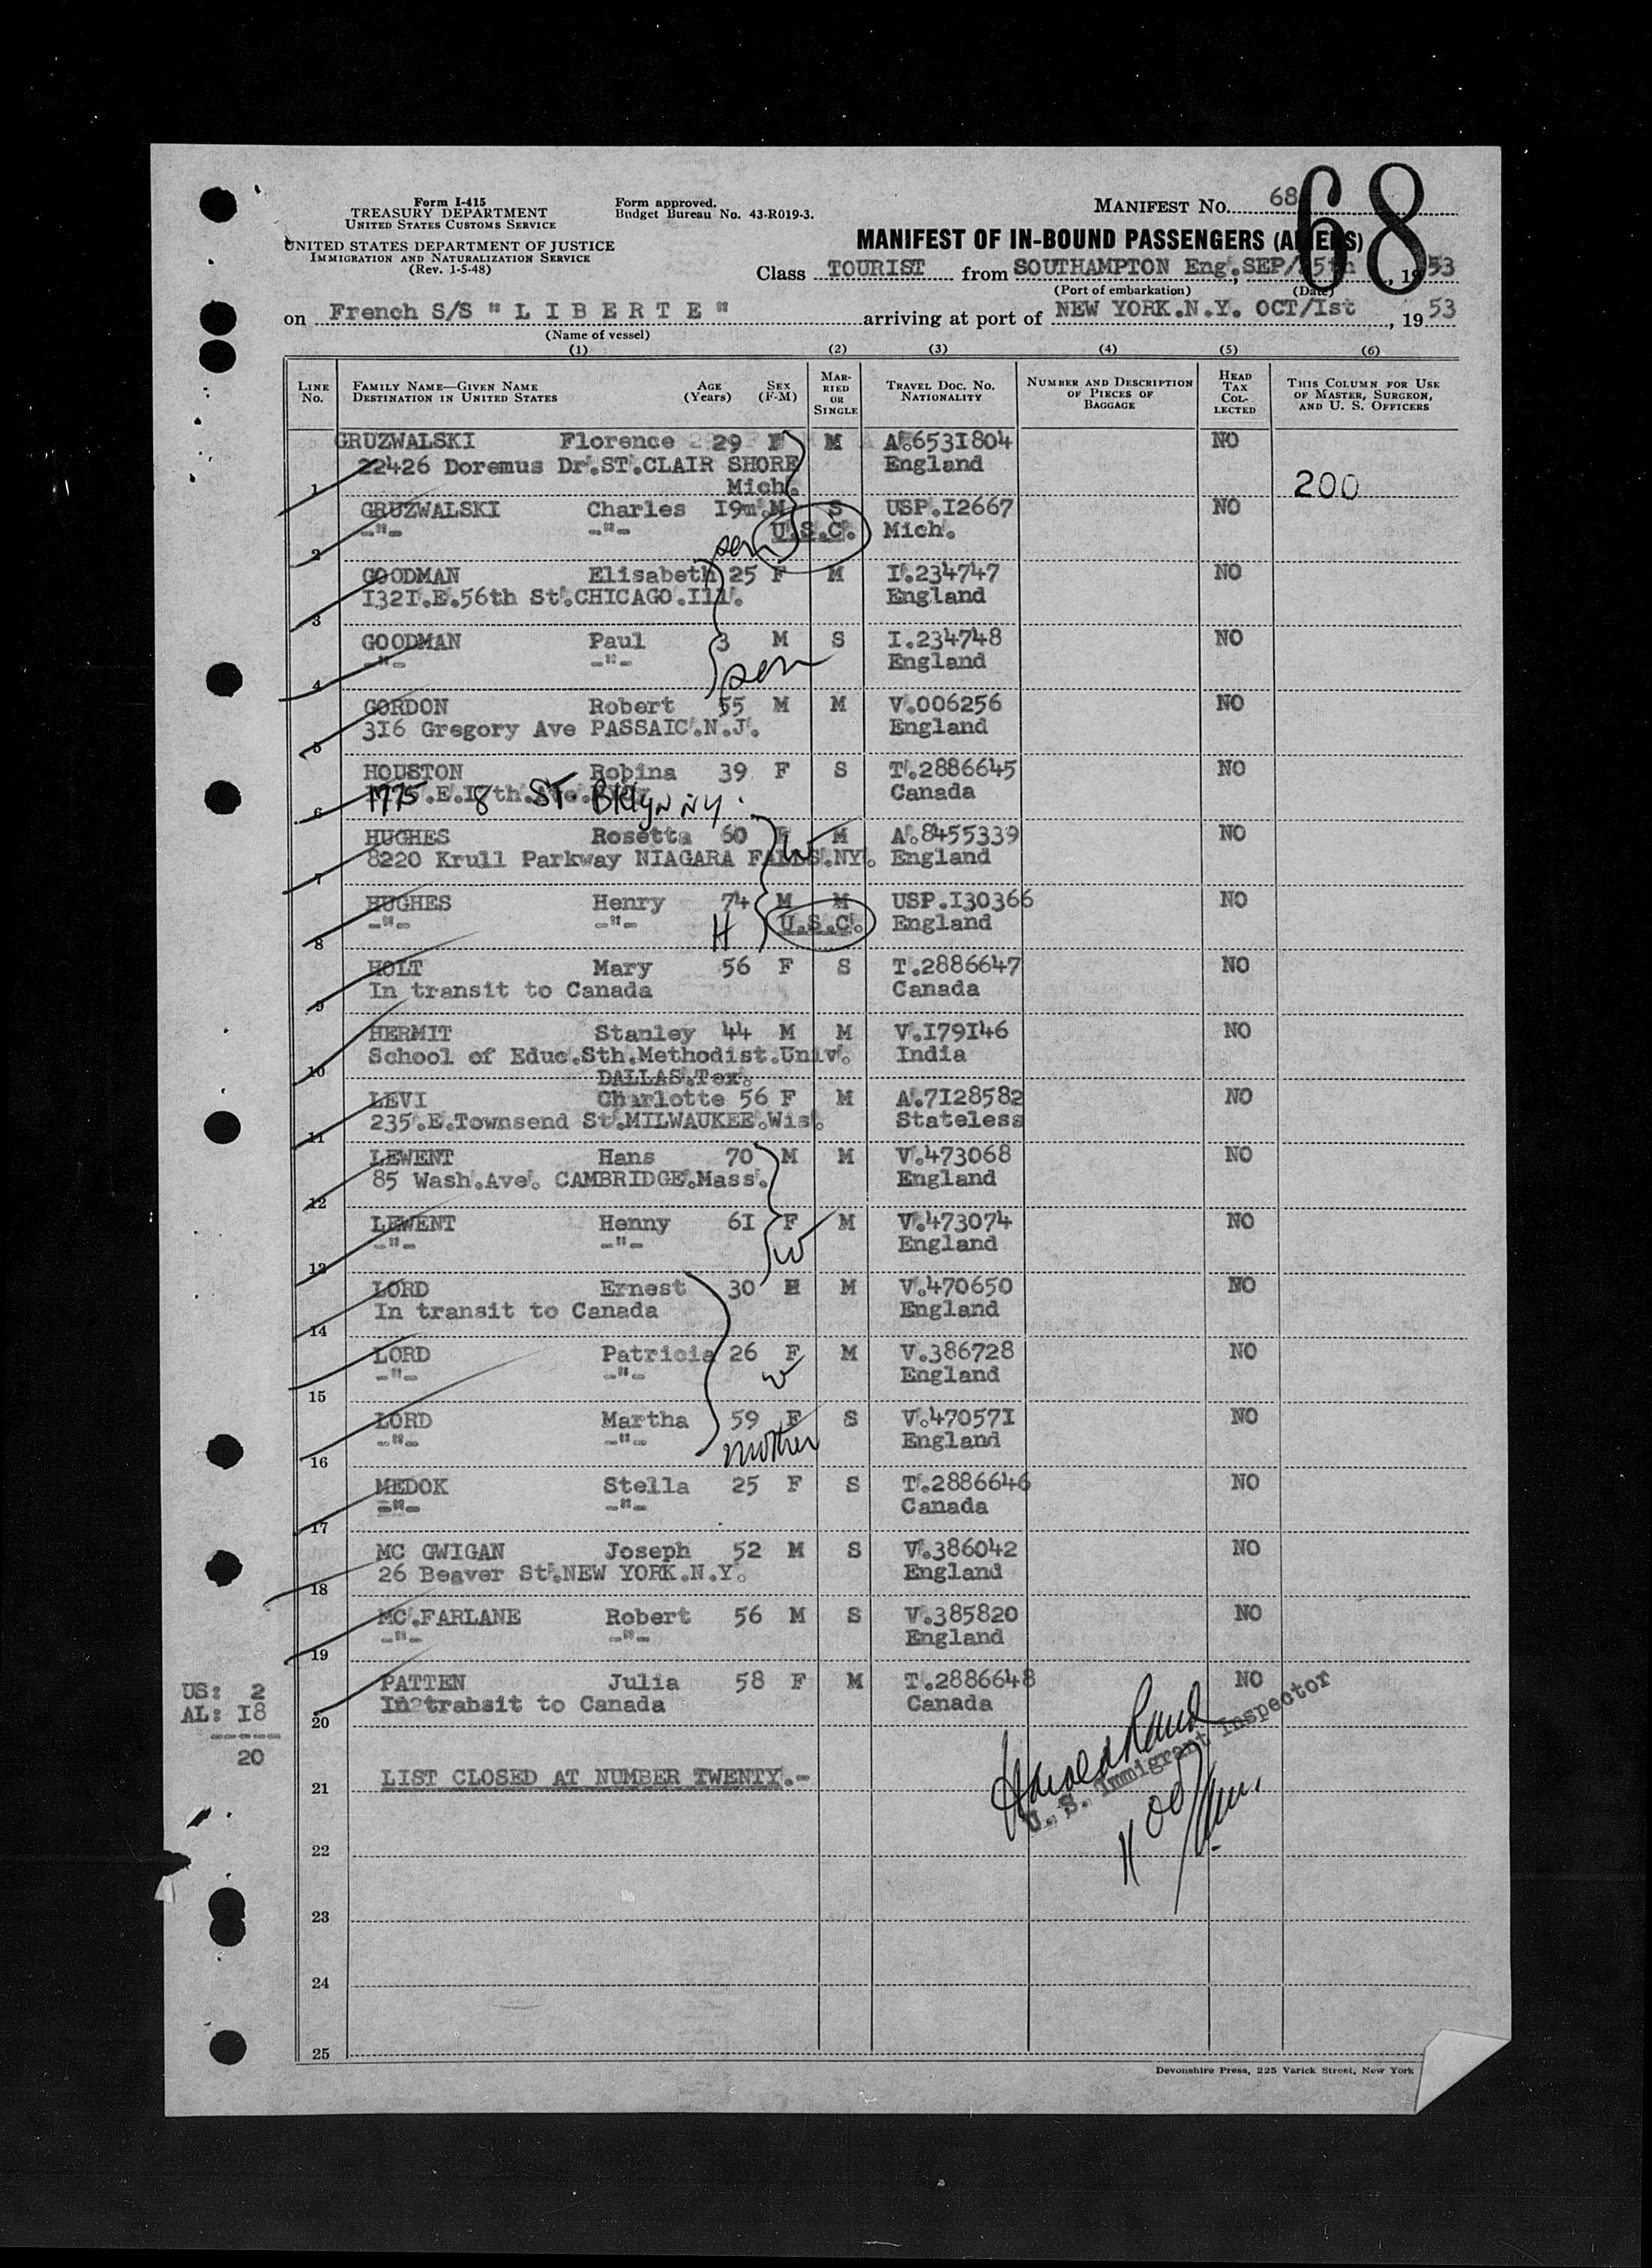 Form I-415
TREASURY DEPARTMENT
UNITED STATES CUSTOMS SERVICE
UNITED STATES DEPARTMENT OF JUSTICE
IMMIGRATION AND NATURALIZATION SERVICE
(Rev. 1-5-48)
Form approved.
Budget Bureau No. 43-R019-3.
MANIFEST NO. 68
68
MANIFEST OF IN-BOUND PASSENGERS (ALIENS)
Class TOURIST from SOUTHAMPTON Eng., SEP/25th, 1953
(Port of embarkation) (Date)
on French S/S "LIBERTE" arriving at port of NEW YORK.N.Y. OCT/Ist, 1953
(Name of vessel)
(1) (2) (3) (4) (5) (6)
LINE No. FAMILY NAME—GIVEN NAME DESTINATION IN UNITED STATES AGE (Years) SEX (F-M) MARRIED OR SINGLE TRAVEL DOC. NO. NATIONALITY NUMBER AND DESCRIPTION OF PIECES OF BAGGAGE HEAD TAX COLLECTED THIS COLUMN FOR USE OF MASTER, SURGEON, AND U. S. OFFICERS
GRUZWALSKI Florence 29 F M A.6531804 NO
22426 Doremus Dr.ST.CLAIR SHORE England
1 Mich. 200
GRUZWALSKI Charles I9m.M S USP.I2667 NO
-"- -"- U.S.C. Mich.
2 son
GOODMAN Elisabeth 25 F M I.234747 NO
I32I.E.56th St.CHICAGO.Ill. England
3
GOODMAN Paul 3 M S I.234748 NO
-"- -"- England
4 son
GORDON Robert 55 M M V.006256 NO
316 Gregory Ave PASSAIC.N.J. England
5
HOUSTON Robina 39 F S T.2886645 NO
1775.E.18th ST. Bklyn NY. Canada
6
HUGHES Rosetta 60 F M A.8455339 NO
8220 Krull Parkway NIAGARA FALLS.NY. England
7 W
HUGHES Henry 74 M M USP.I30366 NO
-"- -"- H U.S.C. England
8
HOLT Mary 56 F S T.2886647 NO
In transit to Canada Canada
9
HERMIT Stanley 44 M M V.I79I46 NO
School of Educ.Sth.Methodist.Univ. India
10 DALLAS.Tex.
LEVI Charlotte 56 F M A.7I28582 NO
235.E.Townsend St.MILWAUKEE.Wis. Stateless
11
LEWENT Hans 70 M M V.473068 NO
85 Wash.Ave. CAMBRIDGE.Mass. England
12
LEWENT Henny 6I F M V.473074 NO
-"- -"- W England
13
LORD Ernest 30 M M V.470650 NO
In transit to Canada England
14
LORD Patricia 26 F M V.386728 NO
-"- -"- w England
15
LORD Martha 59 F S V.47057I NO
-"- -"- mother England
16
MEDOK Stella 25 F S T.2886646 NO
-"- -"- Canada
17
MC GWIGAN Joseph 52 M S V.386042 NO
26 Beaver St.NEW YORK.N.Y. England
18
MC.FARLANE Robert 56 M S V.385820 NO
-"- -"- England
19
PATTEN Julia 58 F M T.2886648 NO
In transit to Canada Canada
20
US: 2
AL: I8
-----
20
Harold Rand
U. S. Immigrant Inspector
21 LIST CLOSED AT NUMBER TWENTY.-
22
23
24
25
Devonshire Press, 225 Varick Street, New York